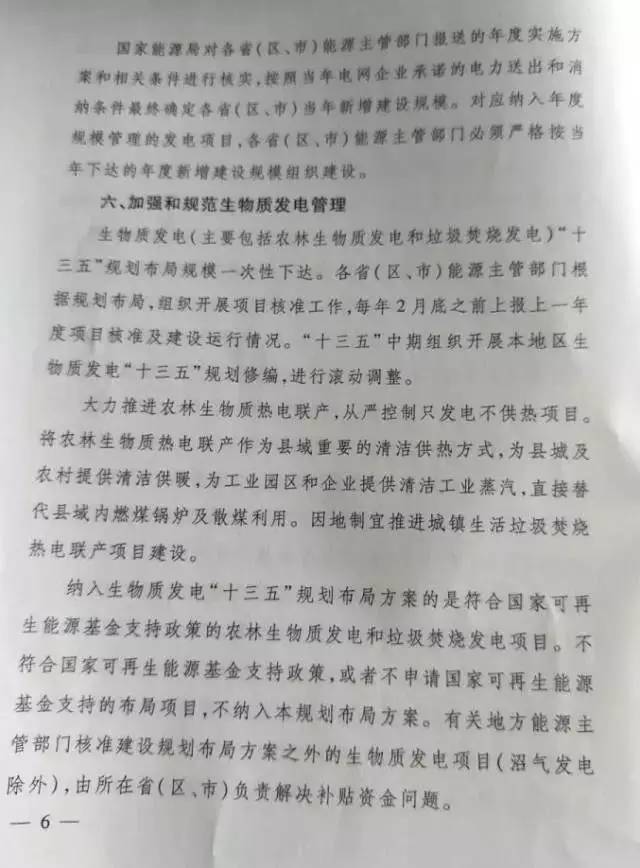 国家能源局对各省(区、市)能源主管部门报送的年度实施方
案和相关条件进行核实,按照当年电网企业承诺的电力送出和消
纳条件最终确定各省(区、市)当年新增建设规模。对应纳入年度
规模管理的发电项目,各省(区、市)能源主管部门必须严格按当
年下达的年度新增建设规模组织建设。
六、加强和规范生物质发电管理
生物质发电(主要包括农林生物质发电和垃圾焚烧发电)“十
三五”规划布局规模一次性下达。各省(区、市)能源主管部门根
据规划布局,组织开展项目核准工作,每年2月底之前上报上一年
度项目核准及建设运行情况。“十三五”中期组织开展本地区生
物质发电“十三五”规划修编,进行滚动调整。
大力推进农林生物质热电联产,从严控制只发电不供热项目。
将农林生物质热电联产作为县域重要的清洁供热方式,为县城及
农村提供清洁供暖,为工业园区和企业提供清洁工业蒸汽,直接替
代县域内燃煤锅炉及散煤利用。因地制宜推进城镇生活垃圾焚烧
热电联产项目建设。
纳入生物质发电“十三五”规划布局方案的是符合国家可再
生能源基金支持政策的农林生物质发电和垃圾焚烧发电项目。不
符合国家可再生能源基金支持政策,或者不申请国家可再生能源
基金支持的布局项目,不纳入本规划布局方案。有关地方能源主
管部门核准建设规划布局方案之外的生物质发电项目(沼气发电
除外),由所在省(区、市)负责解决补贴资金问题。
— 6 —